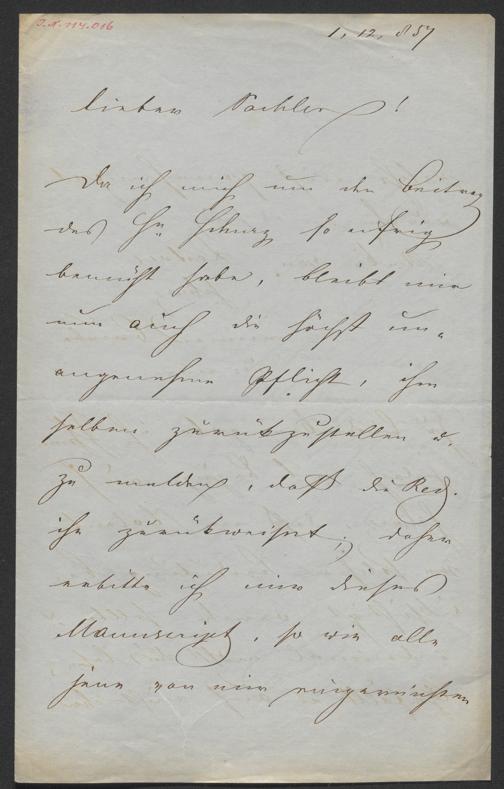 I.N. 114.016
1. 12. 857
Lieber Sachler!
Da ich mich um den Beitrag
des Hn Schurz so eifrig
bemüht habe, bleibt mir
nun auch die höchst un-
angenehme Pflicht, ihm
selben zurückzustellen u.
zu melden, daß die Red.
ihn zurückweiset; daher
erbitte ich mir dieses
Manuscript, so wie alle
jene von mir eingereichten